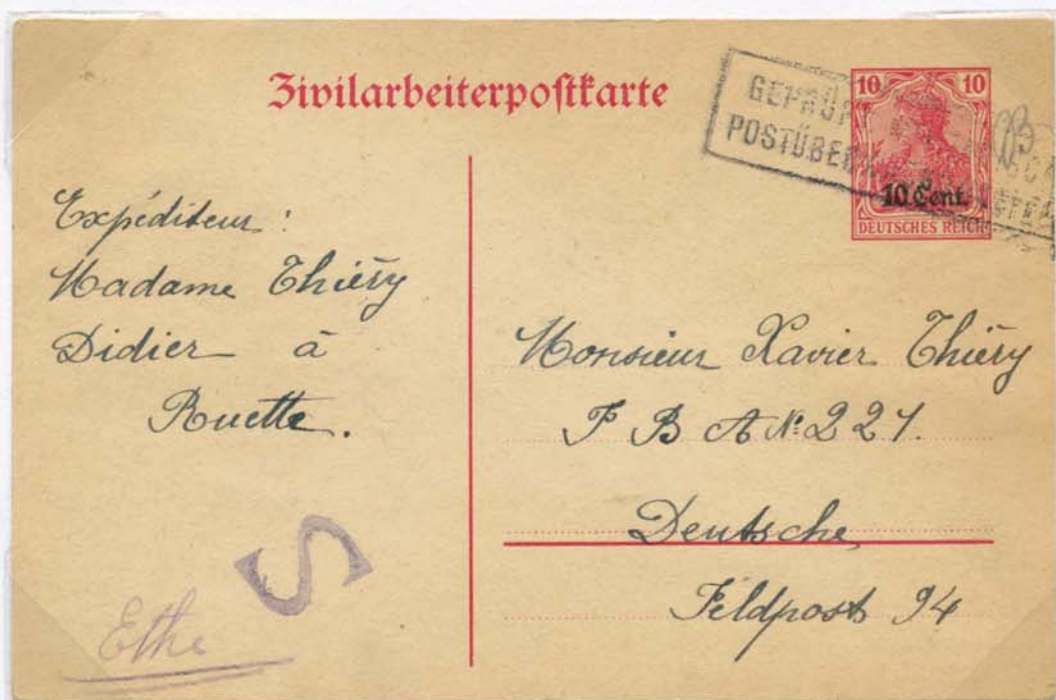 Zivilarbeiterpostkarte
10 10
10 Cent.
DEUTSCHES REICH
Expéditeur :
Madame Thiéry
Didier à
Ruette.
Monsieur Xavier Thiéry
F B A Nº 221.
Deutsche
Feldpost 94
S
Ethe